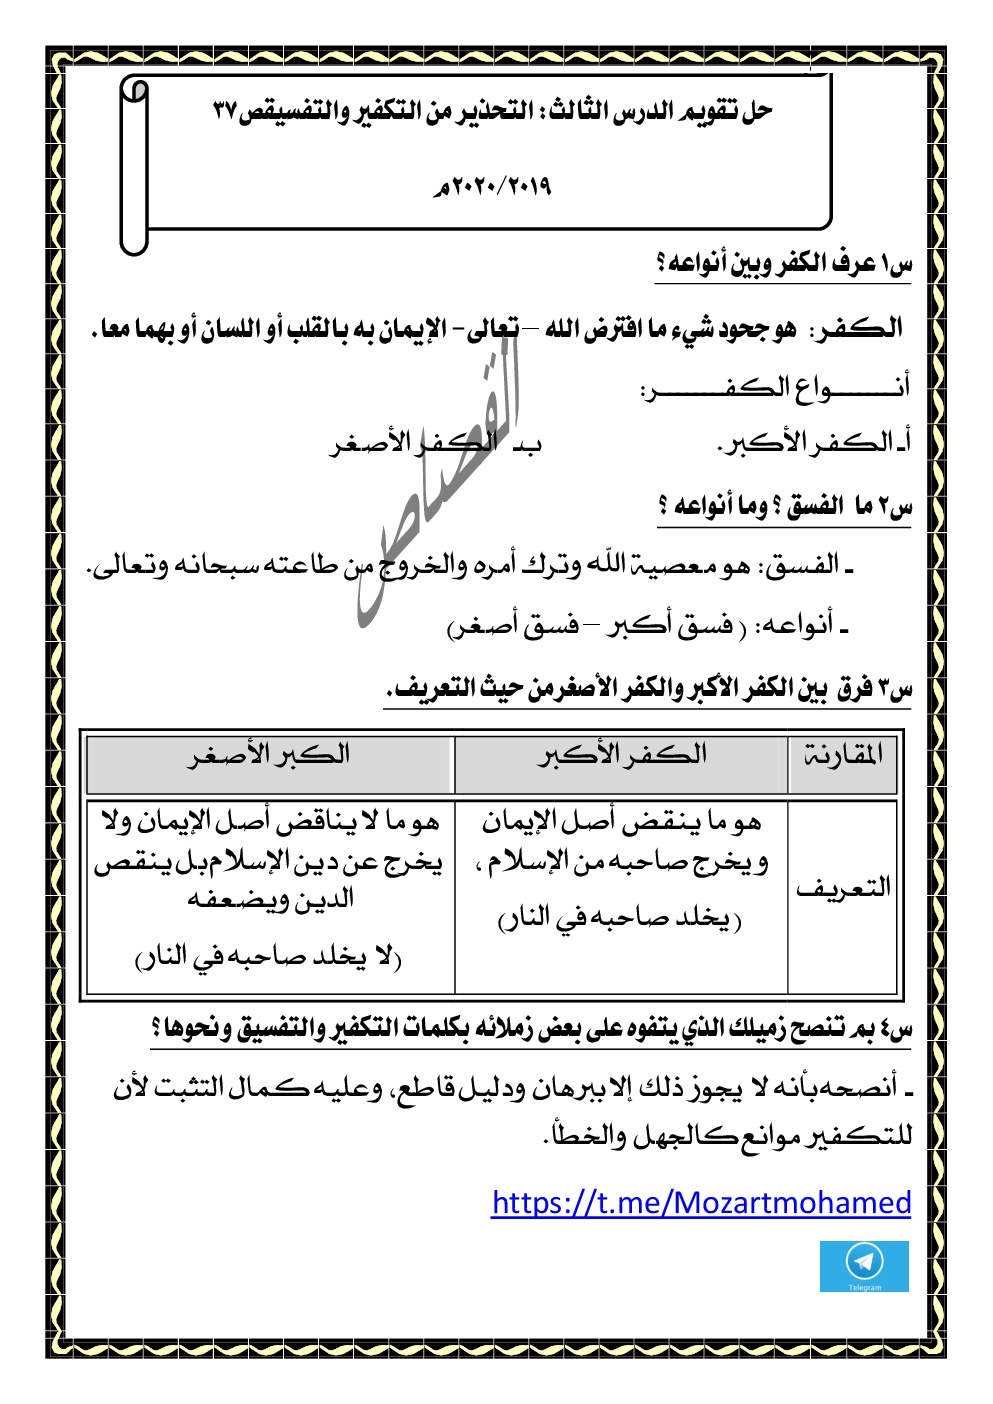 حل تقويم الدرس الثالث: التحذير من التكفير والتفسيقص٣٧
٢٠٢٠/٢٠١٩م
س١ عرف الكفر وبين أنواعه؟
الكفر: هو جحود شيء ما افترض الله – تعالى- الإيمان به بالقلب أو اللسان أو بهما معا.
أنـــــــــواع الكفـــــــــر:
أـ الكفر الأكبر. بـ الكفر الأصغر
القصاص
س٢ ما الفسق ؟ وما أنواعه ؟
ـ الفسق: هو معصية الله وترك أمره والخروج من طاعته سبحانه وتعالى.
ـ أنواعه: ( فسق أكبر – فسق أصغر)
س٣ فرق بين الكفر الأكبر والكفر الأصغرمن حيث التعريف.
المقارنة الكفر الأكبر الكبر الأصغر
التعريف
هو ما ينقض أصل الإيمان
ويخرج صاحبه من الإسلام ،
( يخلد صاحبه في النار)
هو ما لا يناقض أصل الإيمان ولا
يخرج عن دين الإسلام بل ينقص
الدين ويضعفه
(لا يخلد صاحبه في النار)
س٤ بم تنصح زميلك الذي يتفوه على بعض زملائه بكلمات التكفير والتفسيق ونحوها؟
ـ أنصحه بأنه لا يجوز ذلك إلا ببرهان ودليل قاطع، وعليه كمال التثبت لأن
للتكفير موانع كالجهل والخطأ.
https://t.me/Mozartmohamed
Telegram